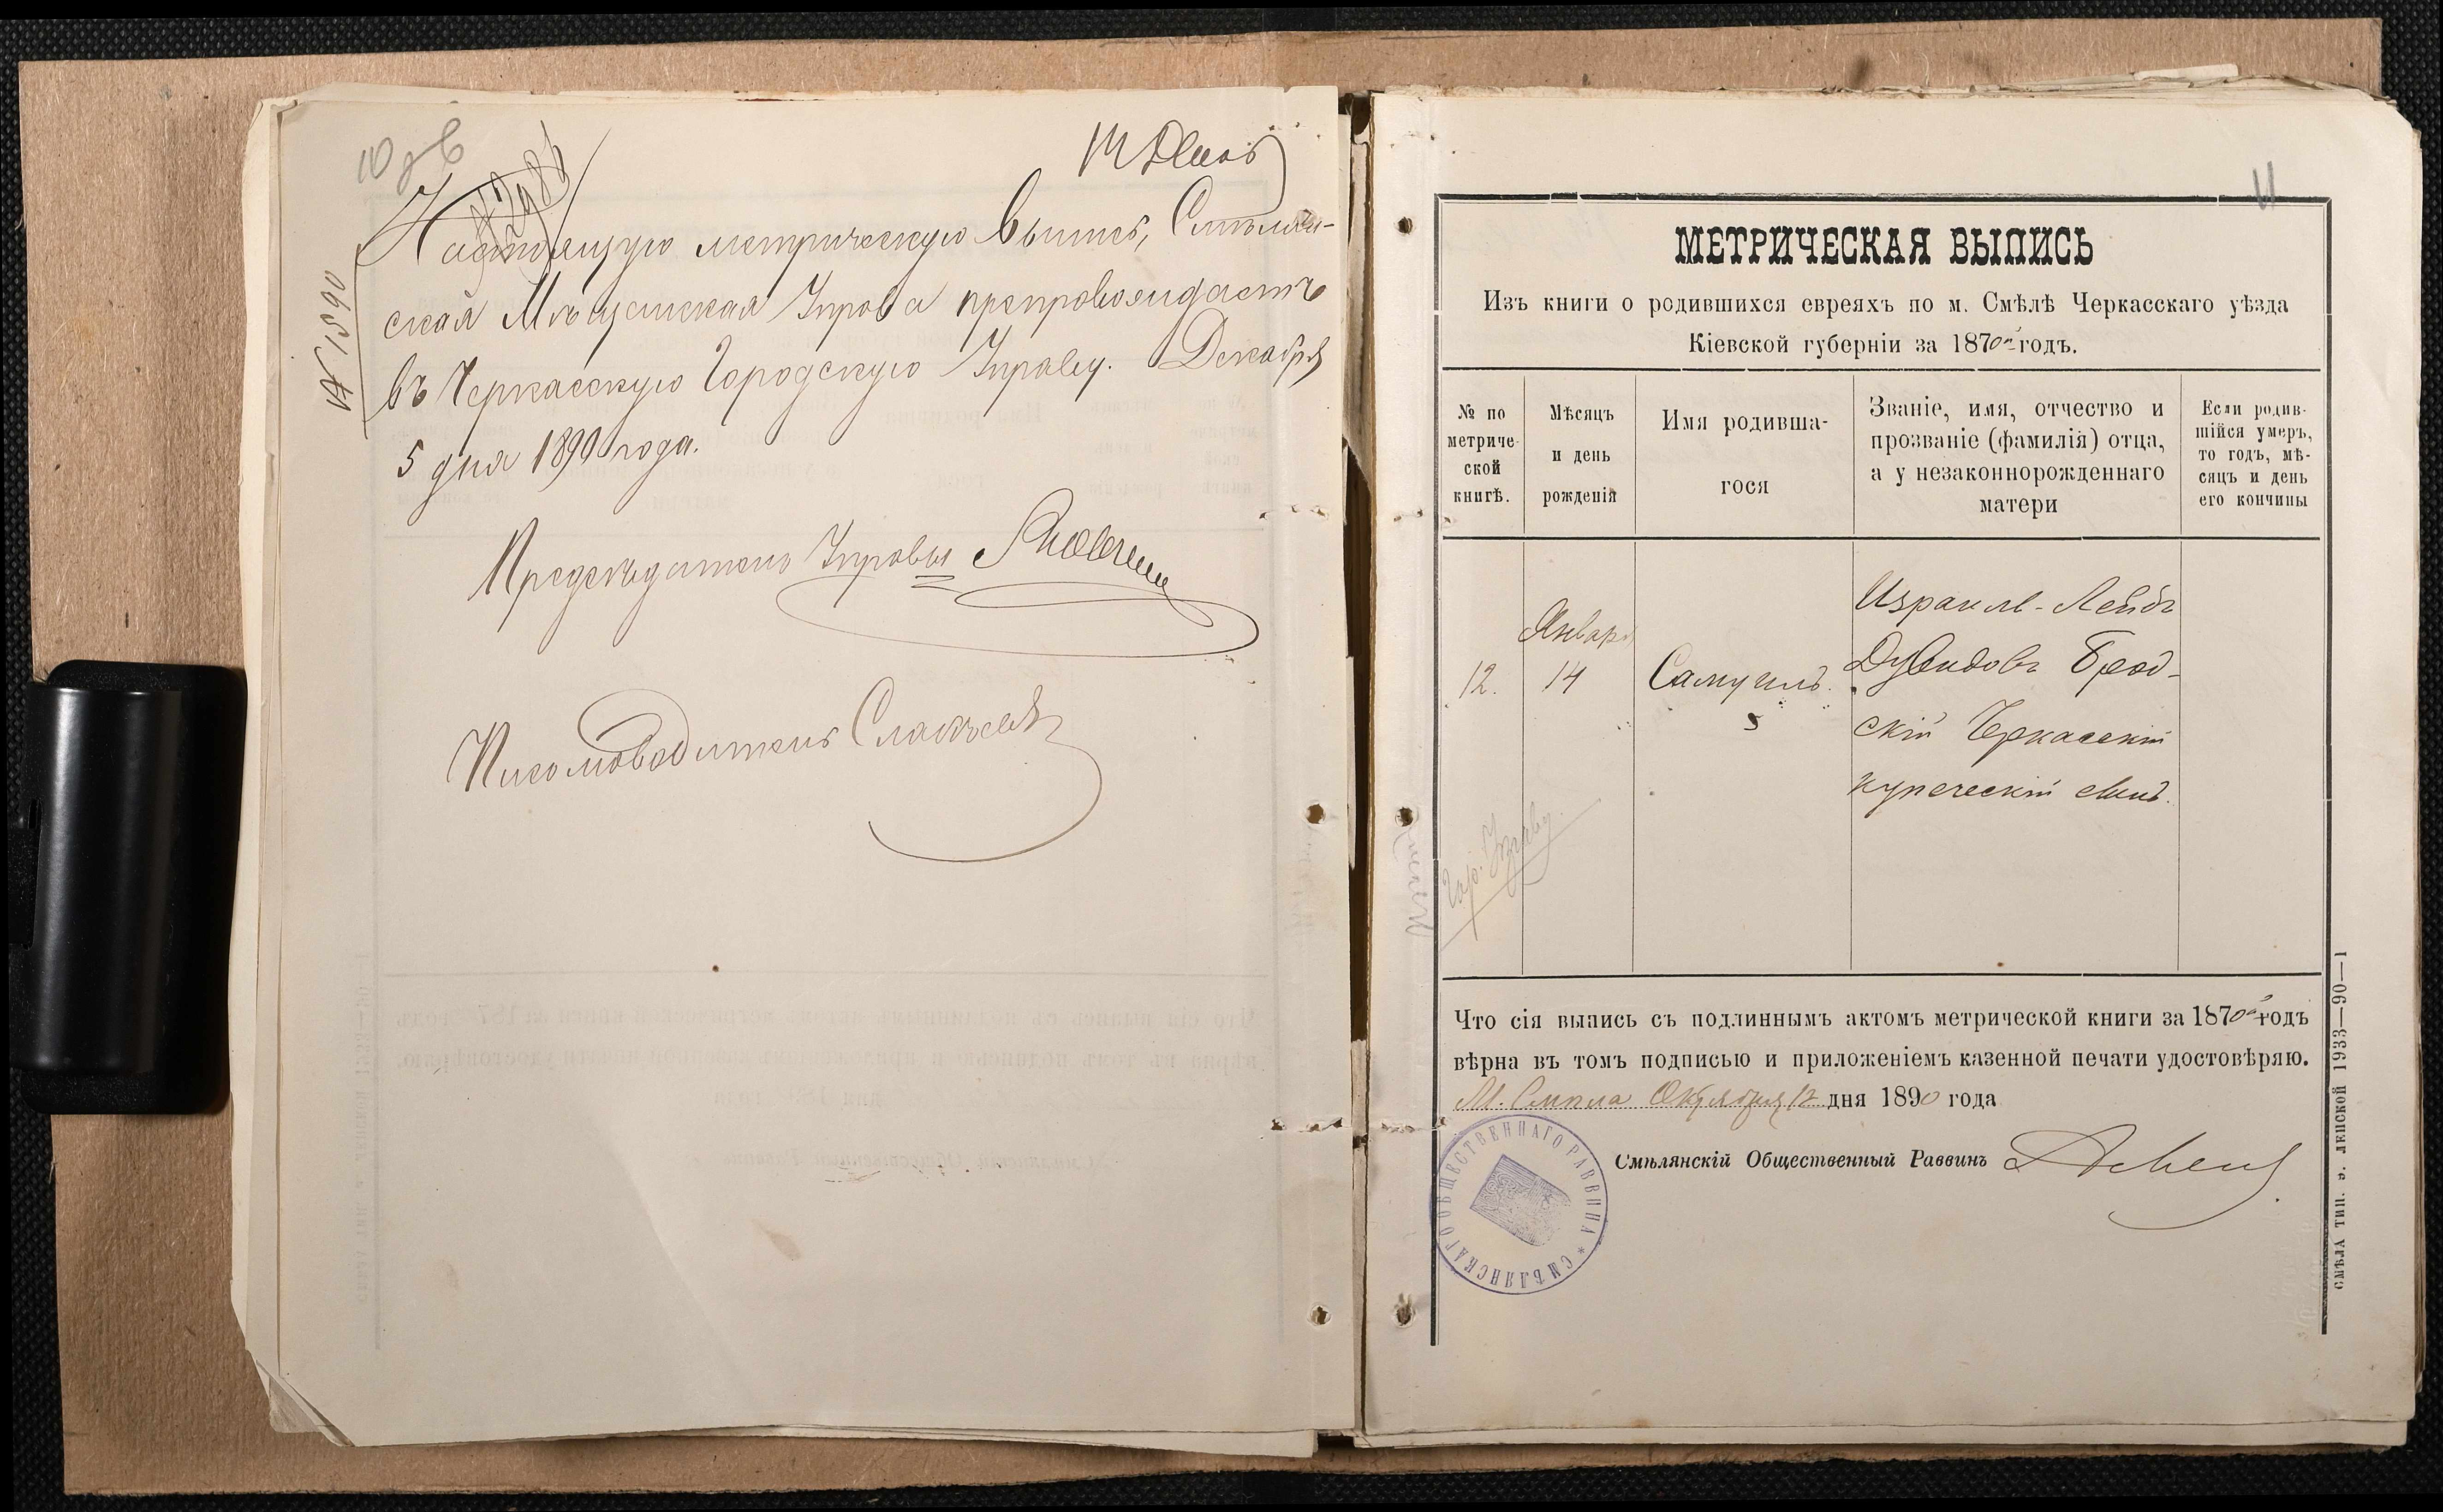 10 об
№ 2986
№ 1590
Настоящую метрическую выпись, Смѣлян-
ская Мѣщанская Управа препровождаетъ
въ Черкасскую Городскую Управу. Декабря
5 дня 1890 года.
Предсѣдатель Управы
Письмоводитель
11
МЕТРИЧЕСКАЯ ВЫПИСЬ
Изъ книги о родившихся евреяхъ по м. Смѣлѣ Черкасскаго уѣзда
Кіевской губерніи за 1870й годъ.
№ по
метриче-
ской
книгѣ.
Мѣсяцъ
и день
рожденія
Имя родивша-
гося
Званіе, имя, отчество и
прозваніе (фамилія) отца,
а у незаконнорожденнаго
матери
Если родив-
шійся умеръ,
то годъ, мѣ-
сяцъ и день
его кончины
12.
Января
14
Самуилъ.
Израиль-Лейбъ
Дувидовъ Брод-
скій Черкасскій
купеческій сынъ.
Гор. Управу.
Что сія выпись съ подлиннымъ актомъ метрической книги за 1870й годъ
вѣрна въ томъ подписью и приложеніемъ казенной печати удостовѣряю.
М. Смѣла Октября 12 дня 1890 года
Смѣлянскій Общественный Раввинъ
СМѢЛЯНСКАГО ОБЩЕСТВЕННАГО РАВВИНА *
СМѢЛА ТИП. Э. ЛЕПСКОЙ 1933—90—1